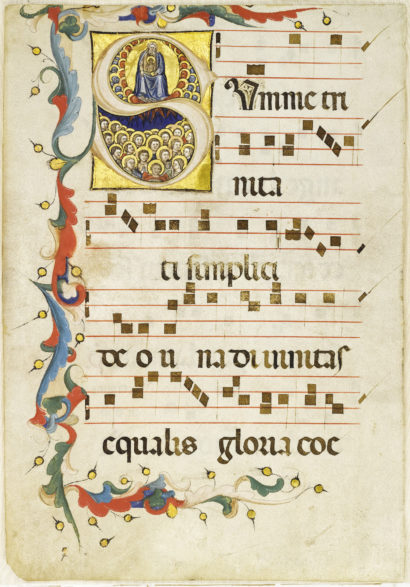 SVmme tri
nita
ti simplici
de o u na diuinitas
equalis gloria coe